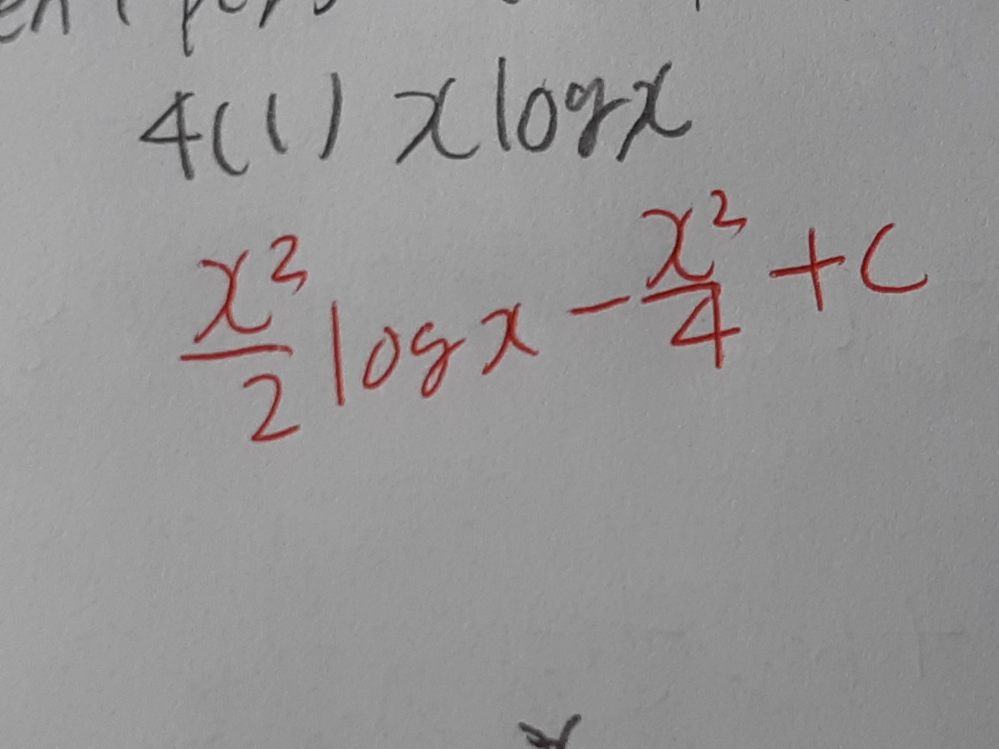 4(1) x log x
x²/2 log x - x²/4 + C